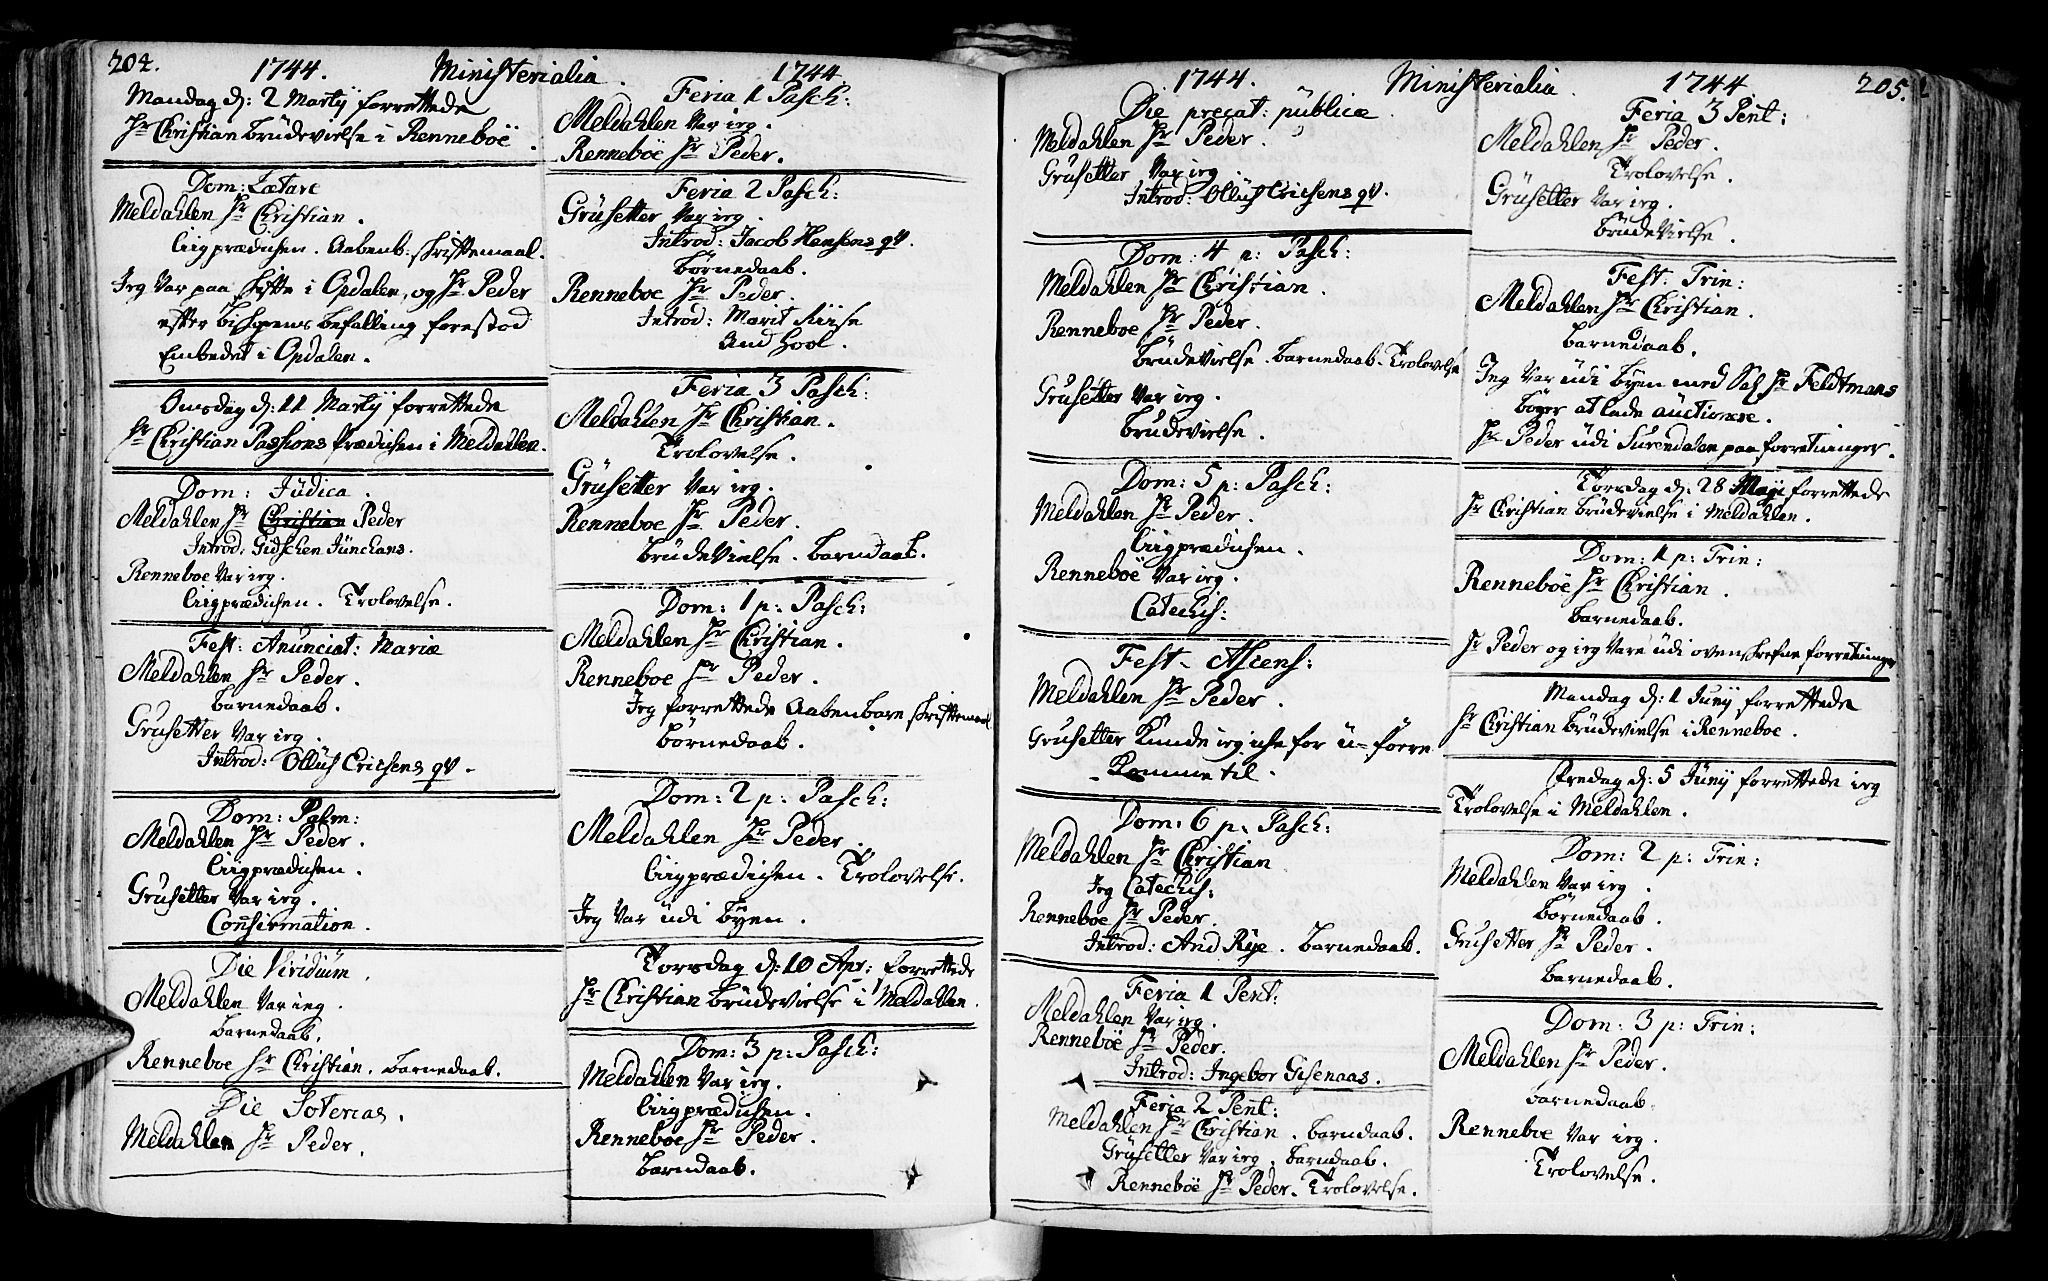 204. 1744. Ministerialia. 1744
Mandag d: 2 Martij forrettede
Hr Christian brüdevielse i Renneboë.
Dom: Lætare
Meldahlen Hr Christian.
Liigprædichen. Aabenb: skriftemaal.
Jeg Var paa skifte i Opdalen, og Hr Peder
efter biskopens befalling forestod
Embedet i Opdalen.
Onsdag d: 11 Martij forrettede
Hr Christian Passions Prædichen i Meldahlen.
Dom: Jüdica.
Meldahlen Hr Christian Peder
Introd: Gidschen Jünchans.
Renneboe Var ieg.
Liigprædichen. Trolovelse.
Fest: Anunciat: Mariæ
Meldahlen Hr Peder.
Barnedaab.
Grusetter Var ieg.
Introd: Olluf Erichsens qv.
Dom: Palm:
Meldahlen Hr Peder.
Liigprædichen.
Grusetter Var ieg.
Confirmation.
Die Viridium.
Meldahlen Var ieg.
Barnedaab.
Renneboe Hr Christian. Barnedaab.
Die Soterias.
Meldahlen Hr Peder.
Feria 1 Pasch:
Meldahlen Var ieg.
Renneboe Hr Peder.
Feria 2 Pasch:
Grüsetter Var ieg.
Introd: Jacob Hensens qv.
Börnedaab.
Renneboe Hr Peder.
Introd: Marit Riise
And Hool.
Feria 3 Pasch:
Meldahlen Hr Christian.
Trolovelse.
Grüsetter Var ieg.
Renneboe Hr Peder.
Brüdevielse. Barndaab.
Dom: 1 p: Pasch:
Meldahlen Hr Christian.
Renneboe Hr Peder.
Jeg forrettede Aabenbare skriftemaal
Börnedaab.
Dom: 2 p: Pasch:
Meldahlen Hr Peder.
Liigprædichen. Trolovelse.
Jeg Var üdi Byen.
Torsdag d: 10 Apr: forrettede
Hr Christian brüdevielse i Meldahlen.
Dom: 3 p: Pasch:
Meldahlen Var ieg.
Liigprædichen.
Renneboe Hr Peder.
Barndaab.
1744. Ministerialia. 1744 205.
Die precat: püblicæ
Meldahlen Hr Peder.
Grusetter Var ieg.
Introd: Olluf Erichsens qv.
Dom: 4 p: Pasch:
Meldahlen Hr Christian.
Renneboe Hr Peder.
Brüdevielse. Barnedaab. Trolovelse
Grusetter Var ieg.
Brudevielse.
Dom: 5 p: Pasch:
Meldahlen Hr Peder.
Liigprædichen.
Renneboë Var ieg.
Catechis:
Fest. Ascens:
Meldahlen Hr Peder.
Grusetter Kunde ieg iche for ü-före
Komme til.
Dom: 6 p: Pasch:
Meldahlen Hr Christian
Jeg Catechis:
Renneboe Hr Peder.
Introd: And Rye. Barnedaab.
Feria 1 Pent:
Meldahlen Var ieg.
Renneboë Hr Peder.
Introd: Ingebor Gisenaas.
Feria 2 Pent:
Meldahlen Hr Christian. Barndaab.
Grüsetter Var ieg. Barndaab.
Renneboë Hr Peder. Trolovelse.
Feria 3 Pent:
Meldahlen Hr Peder.
Trolovelse.
Grüsetter Var ieg.
Brüdevielse.
Fest: Trin:
Meldahlen Hr Christian.
Barnedaab.
Jeg Var üdi Byen med Sal Hr Feldtmans
Böger at lade auctionere.
Hr Peder üdi Surendalen paa forretninger.
Torsdag d: 28 Maji forrettede
Hr Christian brüdevielse i Meldahlen.
Dom: 1 p: Trin:
Renneboë Hr Christian.
Barnedaab.
Hr Peder og ieg Vare üdi ovenskrefne forretninger
Mandag d: 1 Junij forrettede
Hr Christian brüdevielse i Renneboe.
Fredag d: 5 Junij forrettede ieg
Trolovelse i Meldahlen.
Dom: 2 p: Trin:
Meldahlen Var ieg.
Börnedaab.
Grusetter Hr Peder.
Barnedaab.
Dom: 3 p: Trin:
Meldahlen Hr Peder.
Barnedaab.
Renneboe Var ieg.
Trolovelse.